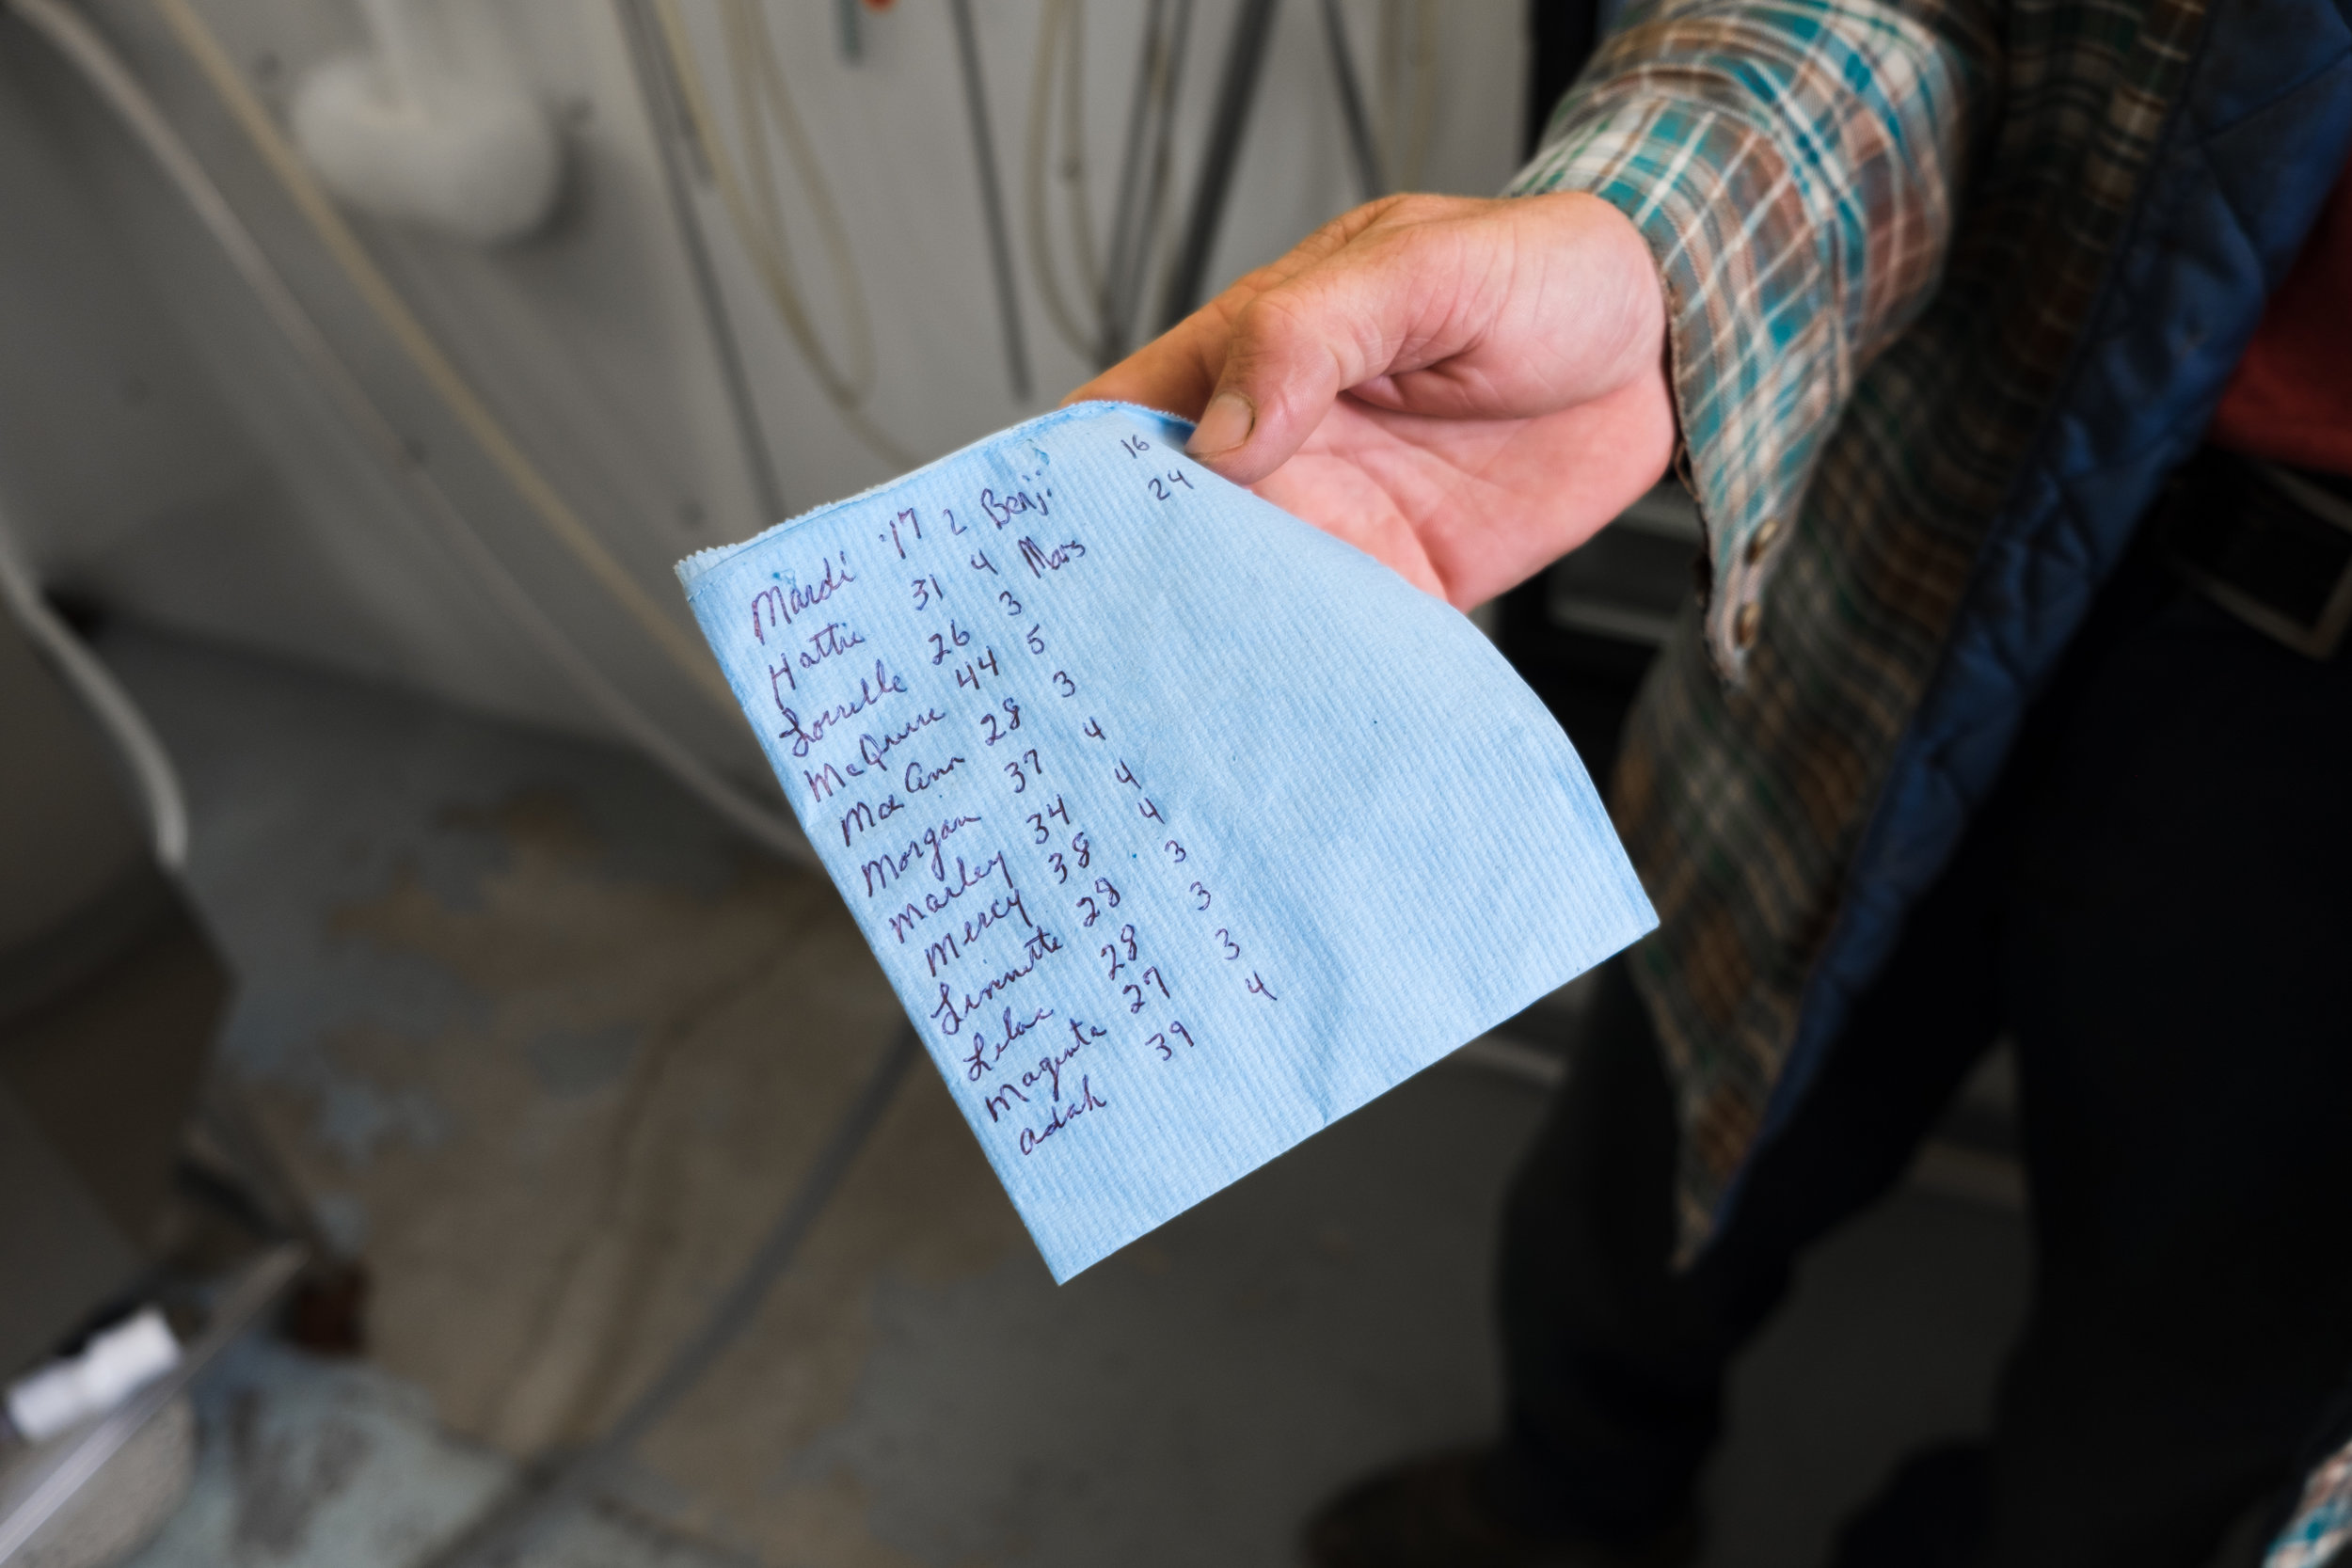 Mardi ·17 2 Benji 16
Hattie 31 4 Mars 24
26 3
McQuire 44 5
Mae Ann 28 3
Morgan 37 4
Marley 34 4
Mercy 38 4
Linnette 28 3
Lilac 28 3
Magenta 27 3
Adah 39 4